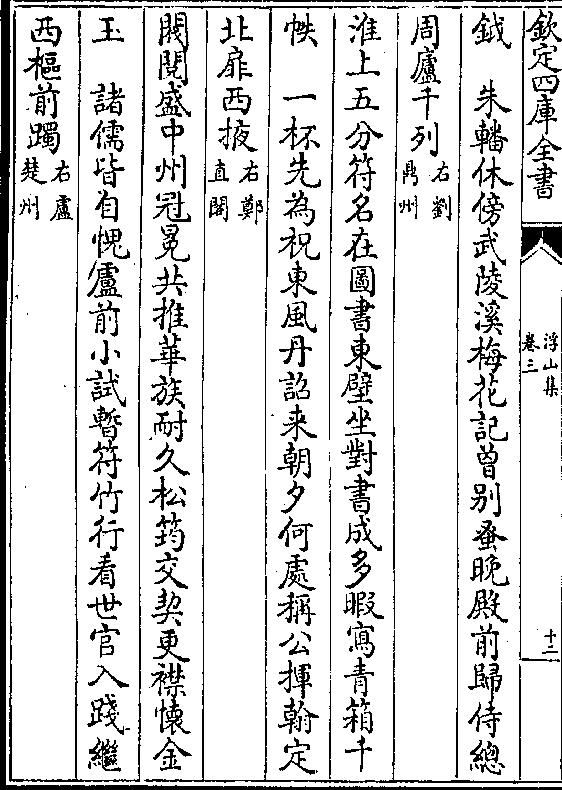 欽定四庫全書
浮山集
卷三
十二
鉞　朱轓休傍武陵溪梅花記曾别蚤晚殿前歸侍總
周廬千列右劉鼎州
淮上五分符名在圖書東壁坐對書成多暇寫青箱千
帙　一杯先為祝東風丹詔来朝夕何處稱公揮翰定
北扉西掖右鄭直閣
閥閱盛中州冠冕共推華族耐久松筠交契更襟懷金
玉　諸儒皆自愧盧前小試暫符竹行看世官入踐繼
西樞前躅右盧楚州